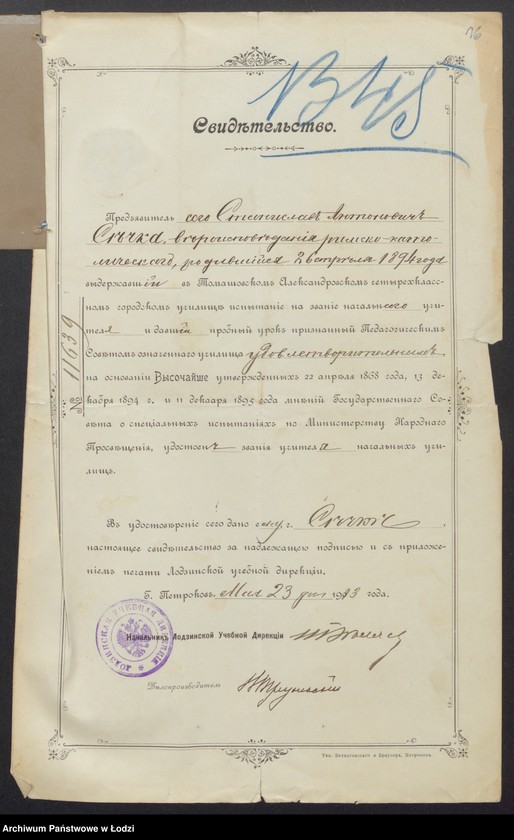 16
Свидѣтельство.
Предъявитель сего Станиславъ Антоновичъ
вѣроисповѣданія римско-като-
лическаго, родившійся 26 апрѣля 1894 года
выдержавшій въ Томашовскомъ Александровскомъ четырехкласс-
номъ городскомъ училищѣ испытаніе на званіе начальнаго учи-
теля и давшій пробный урокъ признанный Педагогическимъ
Совѣтомъ означеннаго училища удовлетворительнымъ
на основаніи Высочайше утвержденныхъ 22 апрѣля 1868 года, 13 де-
кабря 1894 г. и 11 декабря 1895 года мнѣній Государственнаго Со-
вѣта о спеціальныхъ испытаніяхъ по Министерству Народнаго
Просвѣщенія, удостоенъ званія учителя начальныхъ учи-
лищъ.
№ 11639
Въ удостовѣреніе сего дано ему г.
настоящее свидѣтельство за надлежащею подписью и съ приложе-
ніемъ печати Лодзинской учебной дирекціи.
Г. Петроковъ, Мая 23 дня 1913 года.
Начальникъ Лодзинской Учебной Дирекціи
Дѣлопроизводитель
Archiwum Państwowe w Łodzi